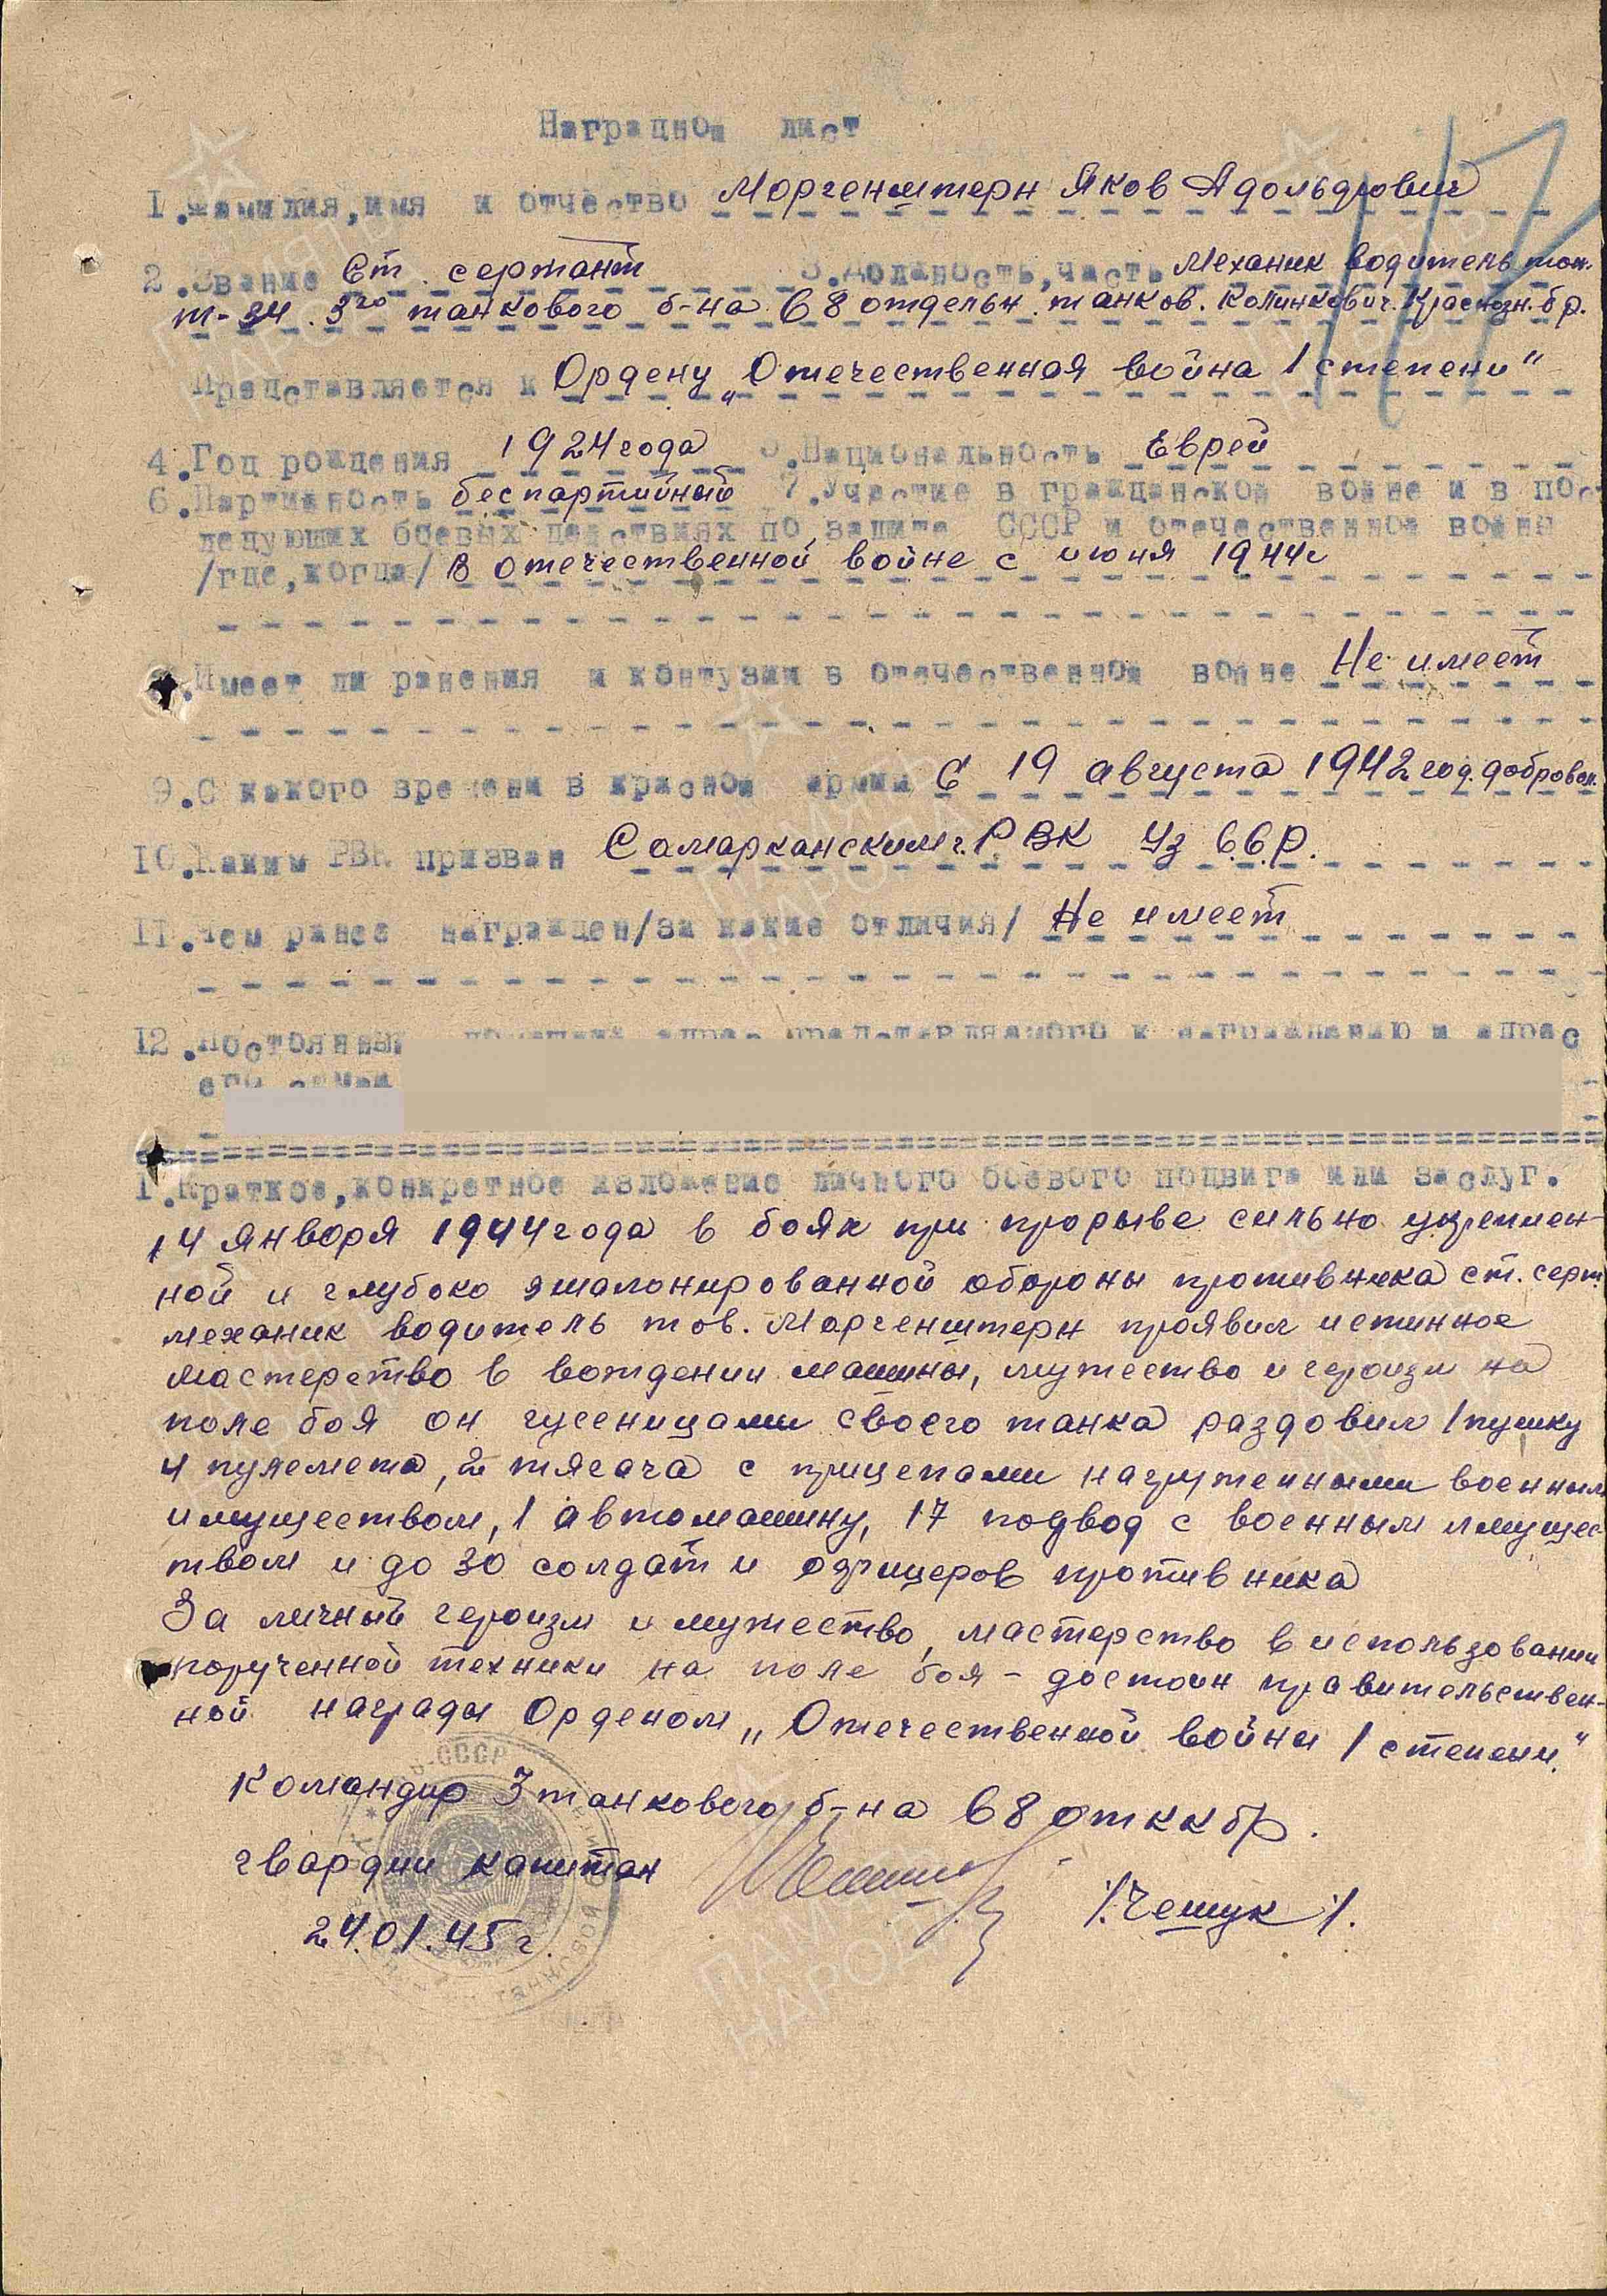 Наградной лист
1.Фамилия,имя и отчество Моргенштерн Яков Адольфович
2.Звание Ст. сержант 3.Должность,часть Механик водитель тан.
т-34 3го танкового б-на 68 отдельн. танков. Калинкович. Краснозн. бр.
Представляется к Ордену „Отечественная война 1 степени"
4.Год рождения 1924 года 5.Национальность Еврей
6.Партийность беспартийный 7.Участие в гражданской войне и в пос
ледующих боевых действиях по защите СССР и отечественной войне
/где,когда/ В отечественной войне с июня 1944г
8.Имеет ли ранения и контузии в отечественной войне Не имеет
9.С какого времени в красной армии С 19 августа 1942 год. добровол.
10.Каким РВК призван Самаркански́м г. РВК Уз С.С.Р.
11.Чем ранее награжден/за какие отличия/ Не имеет
12.Постоянный домашний адрес представляемого к награждению и адрес
его семьи
1.Краткое,конкретное изложение личного боевого подвига или заслуг.
14 января 1944 года в боях при прорыве сильно укреплен-
ной и глубоко эшалонированной обороны противника ст. серж.
механик водитель тов. Моргенштерн проявил истинное
мастерство в вождении машины, мужество и героизм на
поле боя он гусеницами своего танка раздовил 1 пушку
4 пулемета, 2 тягача с прицепами нагруженными военным
имуществом, 1 автомашину, 17 подвод с военным имущес
твом и до 30 солдат и офицеров противника
За личный героизм и мужество, мастерство в использовании
порученной техники на поле боя - достоин правительствен-
ной награды Орденом „Отечественной войны 1 степени."
Командир 3 танкового б-на 68 откк бр.
гвардии капитан /.Чешук /.
24.01.45г.
ПАМЯТЬ
НАРОДА